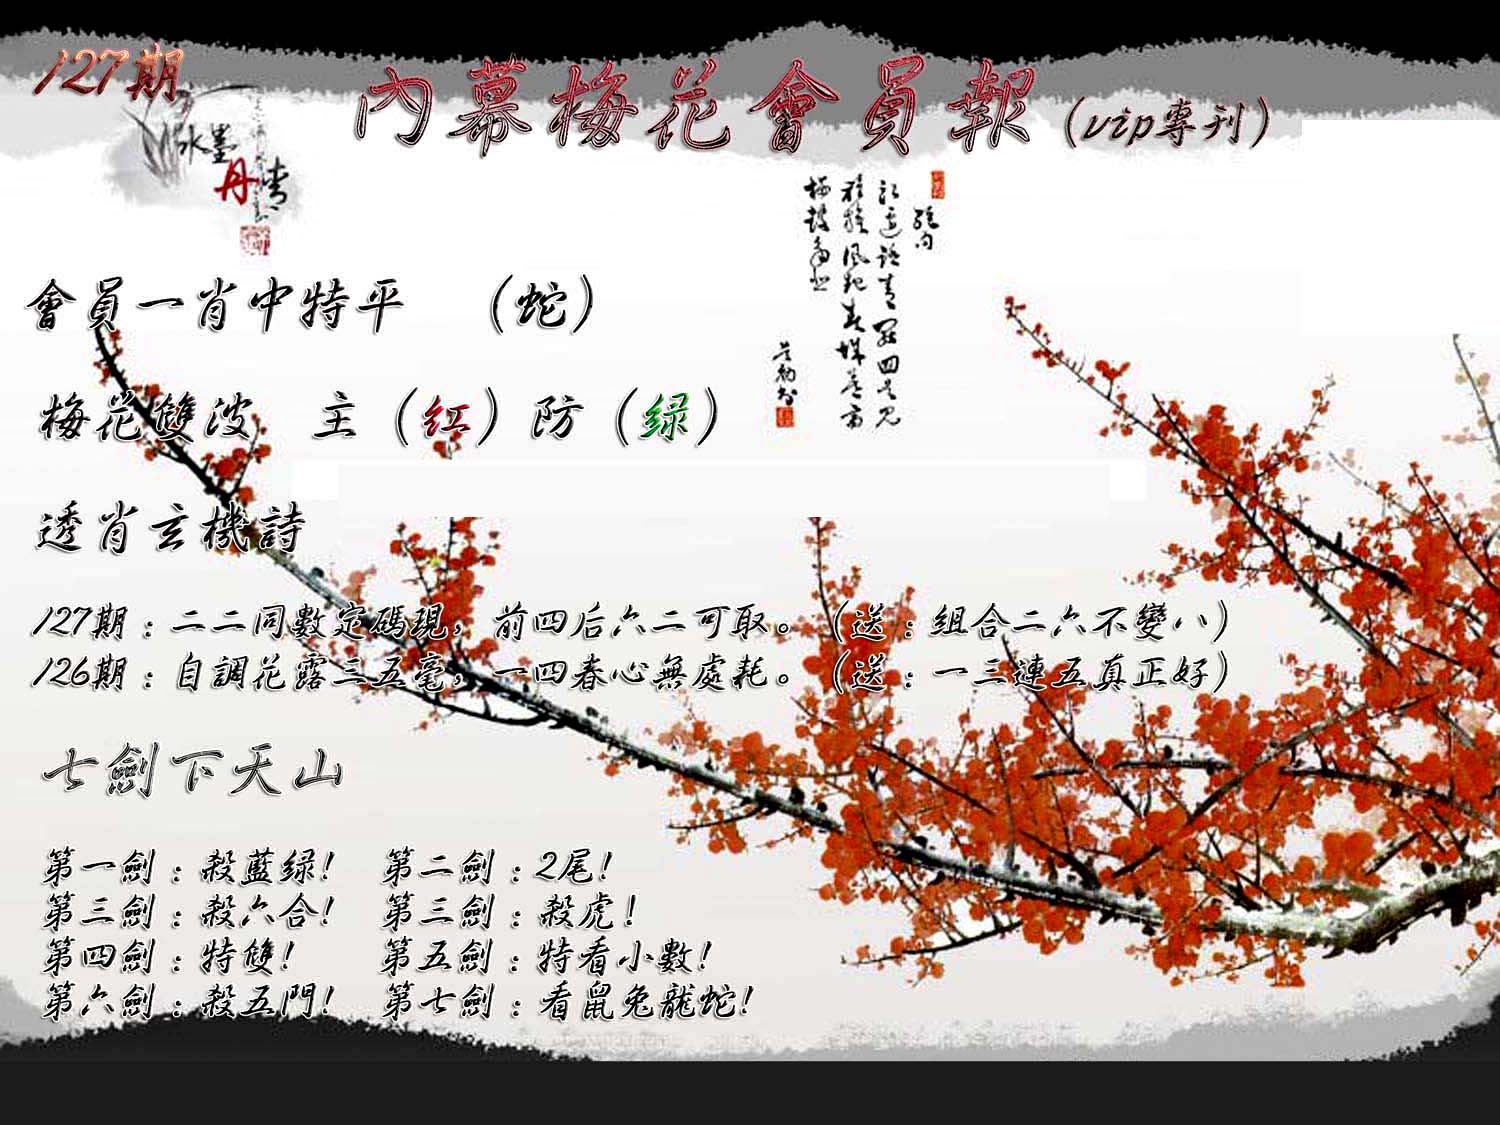 127期
內幕梅花會員報（vip專刊）
水墨
丹青
會員一肖中特平　（蛇）
梅花雙波　主（红）防（绿）
透肖玄機詩
127期：二二同數定碼現，前四后六二可取。（送：組合二六不變八）
126期：自調花露三五毫，一四春心無處耗。（送：一三連五真正好）
七劍下天山
第一劍：殺藍绿！　第二劍：2尾！
第三劍：殺六合！　第三劍：殺虎！
第四劍：特雙！　第五劍：特看小數！
第六劍：殺五門！　第七劍：看鼠兔龍蛇！